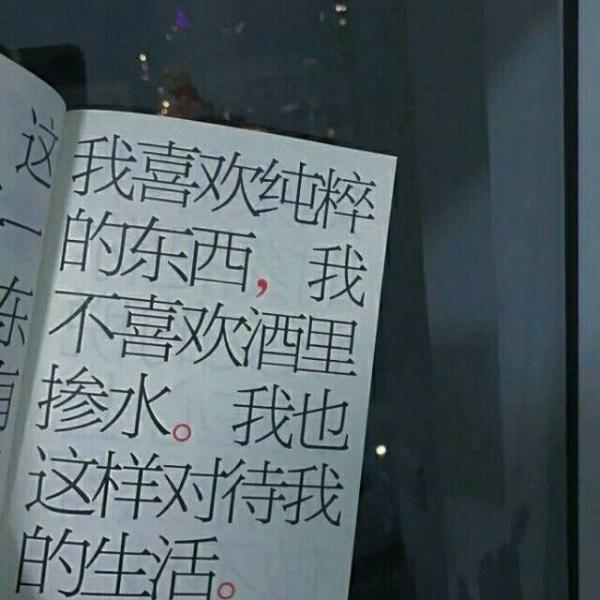 我喜欢纯粹
的东西，我
不喜欢酒里
掺水。我也
这样对待我
的生活。
这